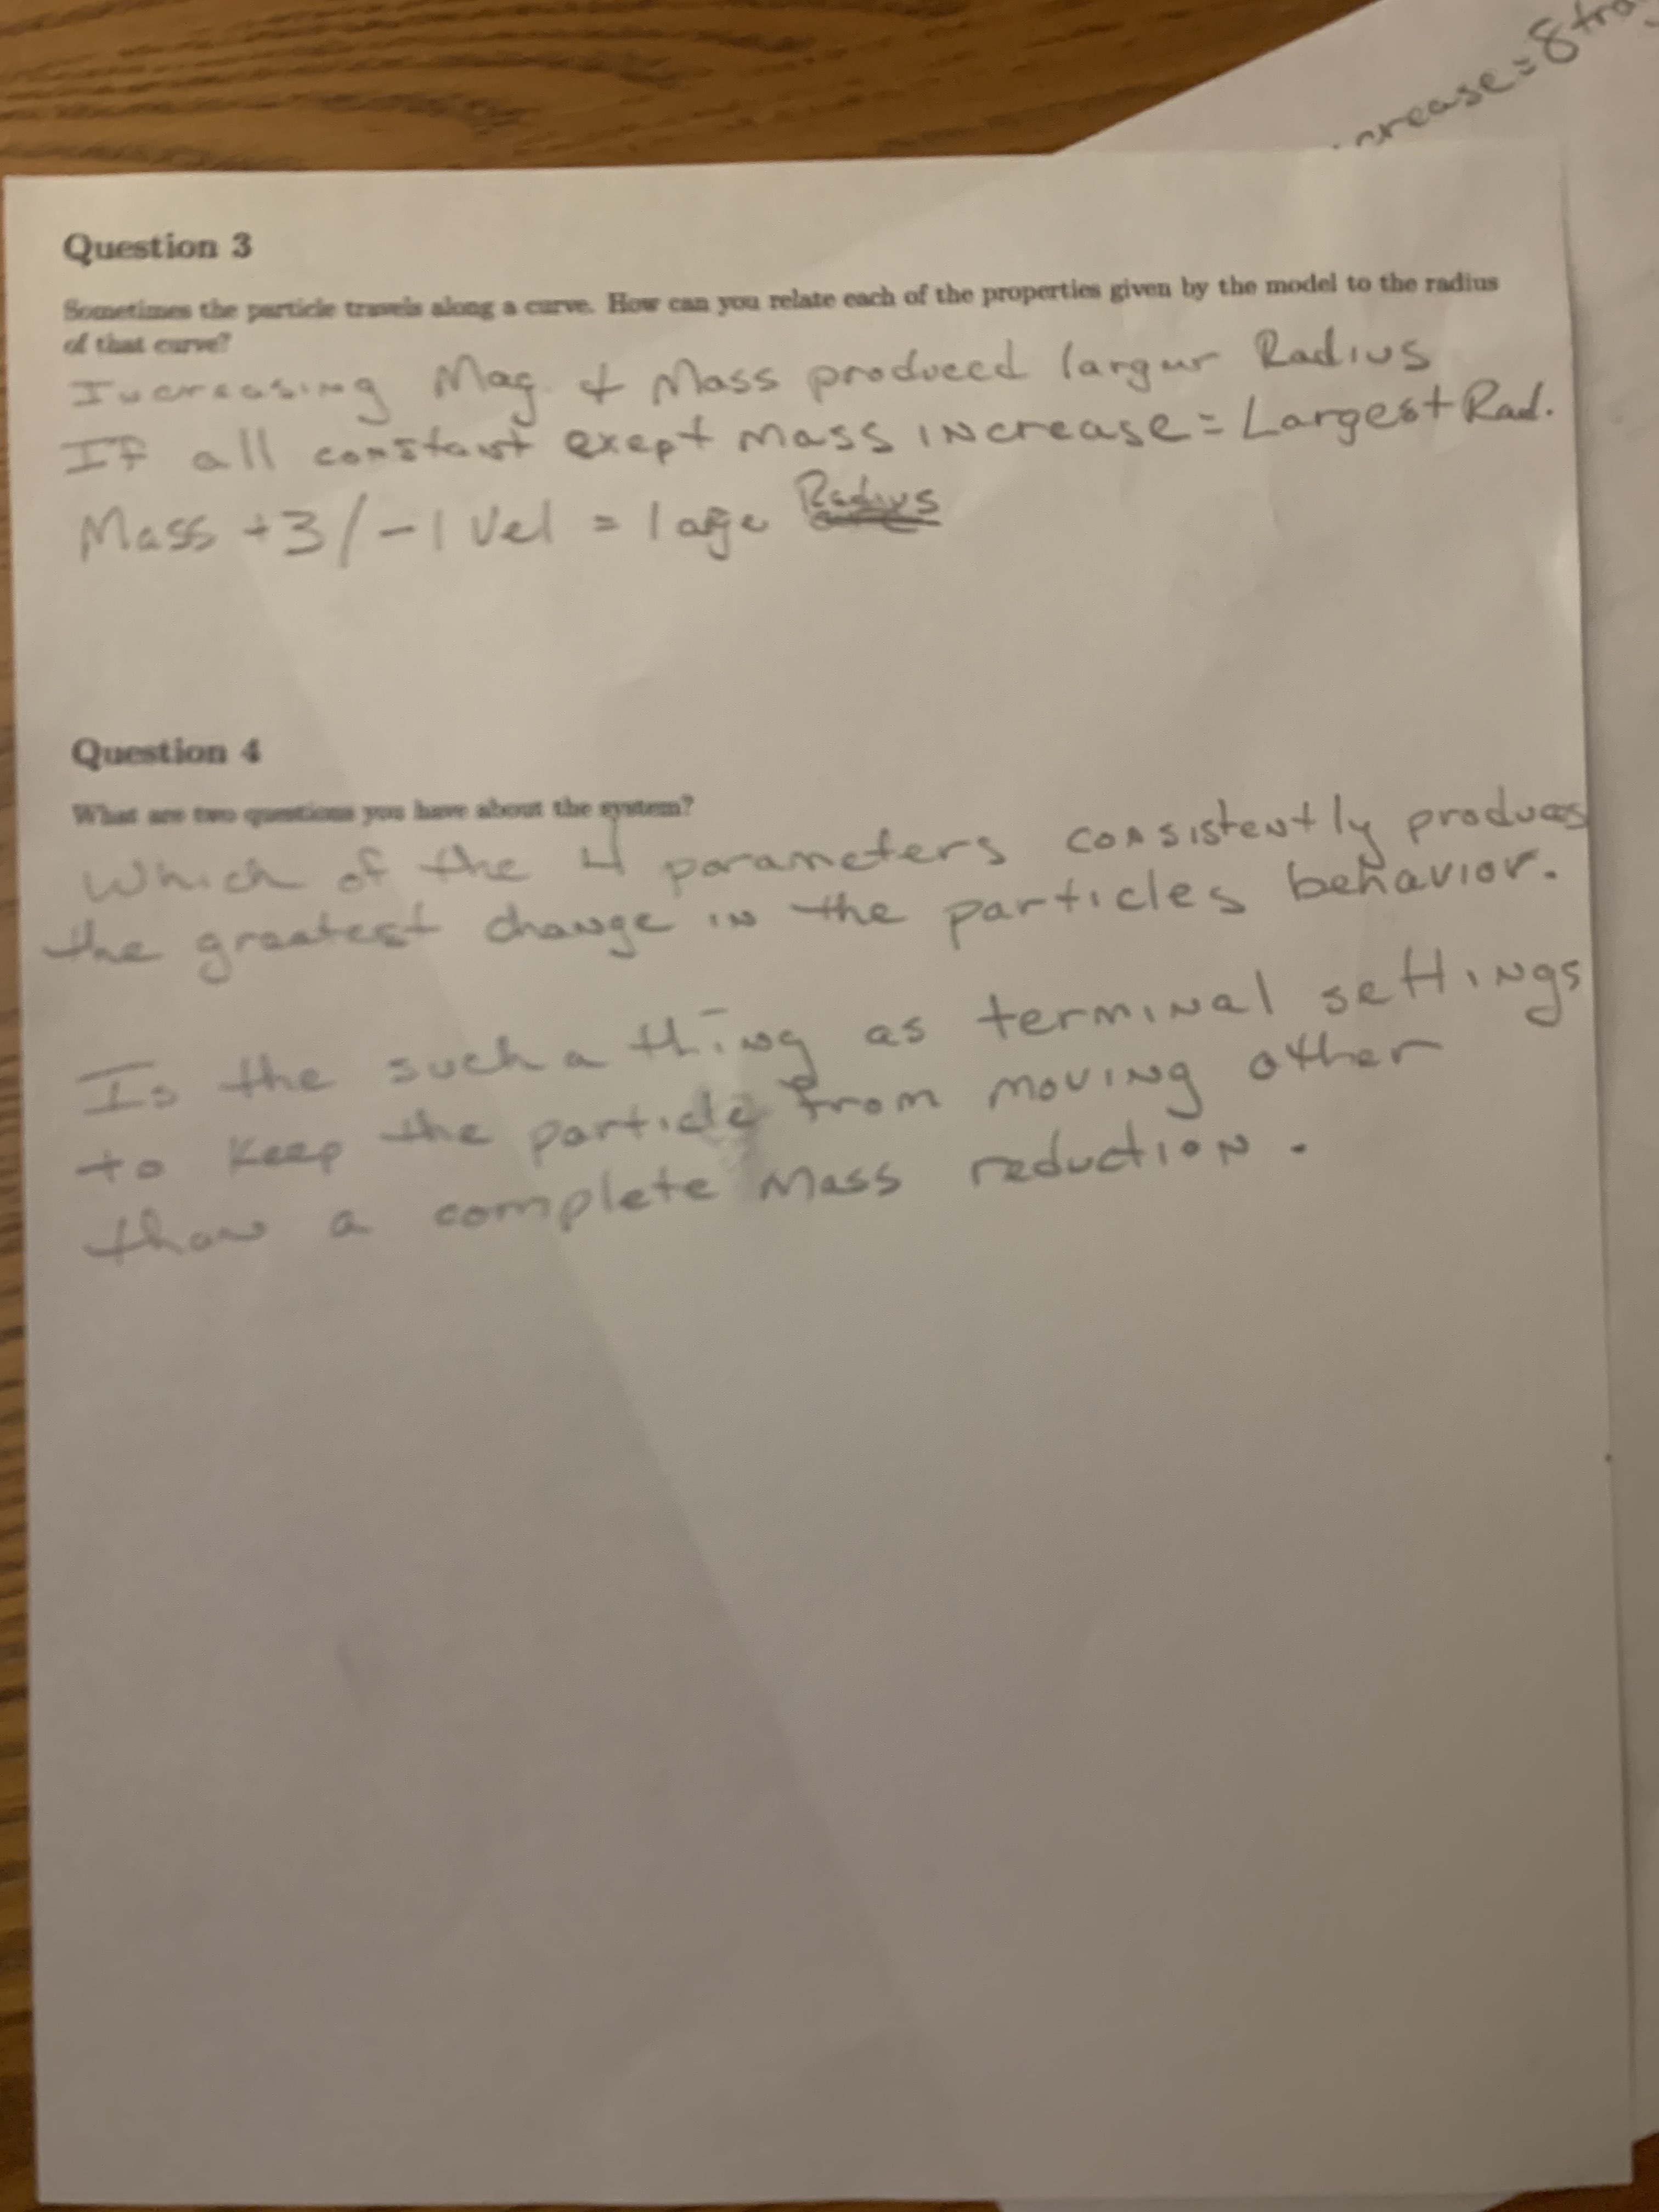 rease=8
Question 3
Sometimes the particle travels along a curve. How can you relate each of the properties given by the model to the radius
of that curve?
Increasing Mag & Mass produced largur Radius
If all constant exept mass increase = Largest Rad.
Mass +3/-1 Vel = large Radius
Question 4
What are two questions you have about the system?
Which of the 4 parameters consistently produces
the greatest change in the particles behavior.
Is the such a thing as terminal settings
to keep the particle from moving other
than a complete mass reduction.